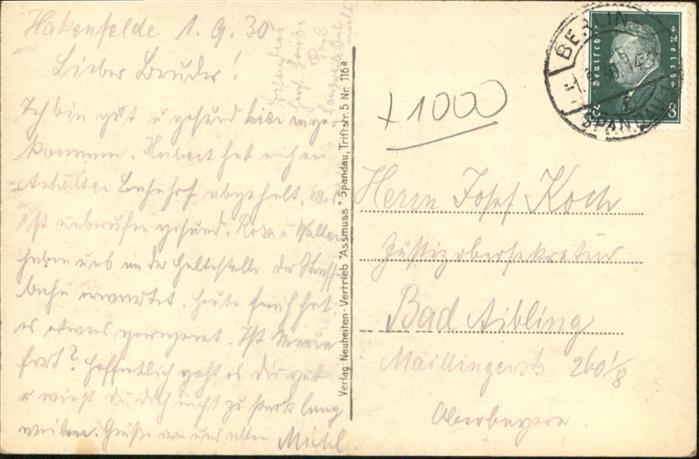 Hakenfelde 1.9.30
Lieber Bruder!
Ich bin gut u gesund hier ange-
kommen. Hubert hat mich am
Anhalter Bahnhof abgeholt. Alles
ist unberufen gesund. Rosa u Walter
haben uns an der Haltestelle der Straßen-
bahn erwartet. Heute früh hat
es etwas geregnet. Ist Maria
fort? Hoffentlich geht es Dir gut
u wirst Du Dich nicht zu stark lang-
weilen. Grüße von uns allen Michl
Verlag Neuheiten-Vertrieb "Assmuss" Spandau, Triftstr. 5 Nr. 116a
+1000
BERLIN
SPANDAU
Deutsches Reich
8
Herrn Josef Koch
Justizobersekretär
Bad Aibling
Maillingerstr. 260 1/8
Oberbayern.